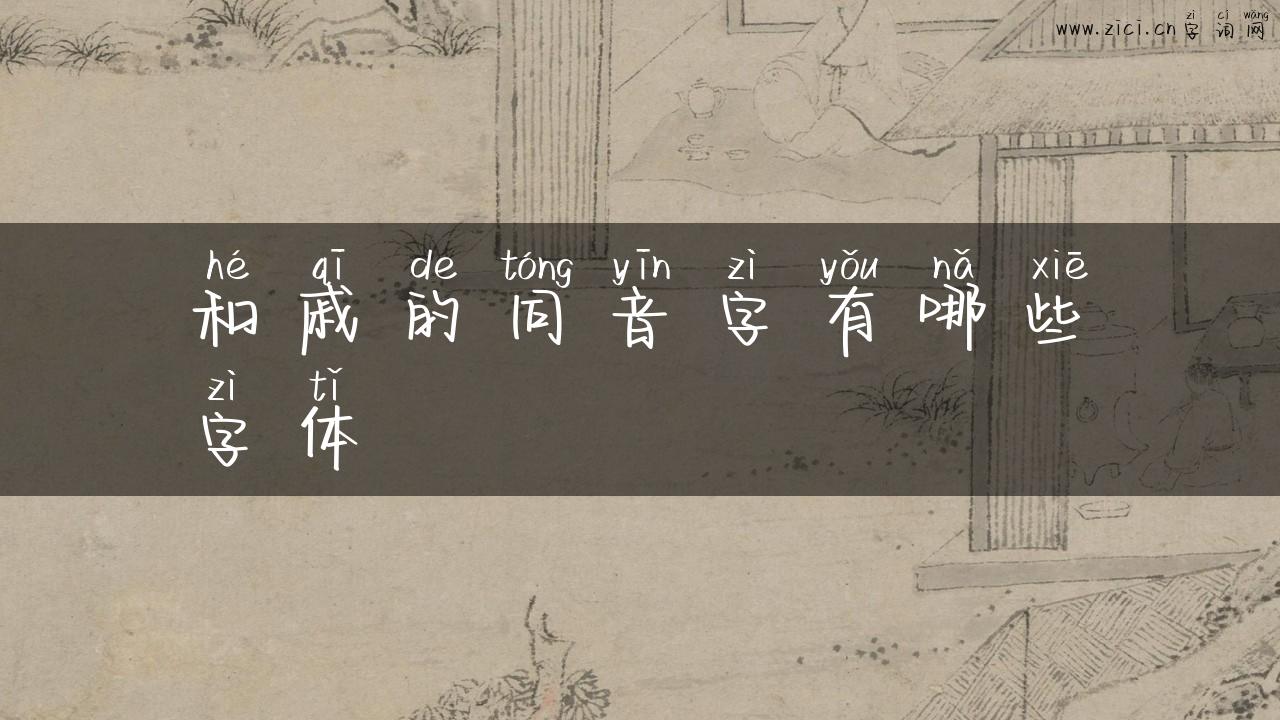 zì cí wǎng
www.zici.cn 字词网
hé qī de tóng yīn zì yǒu nǎ xiē
和戚的同音字有哪些
zì tǐ
字体